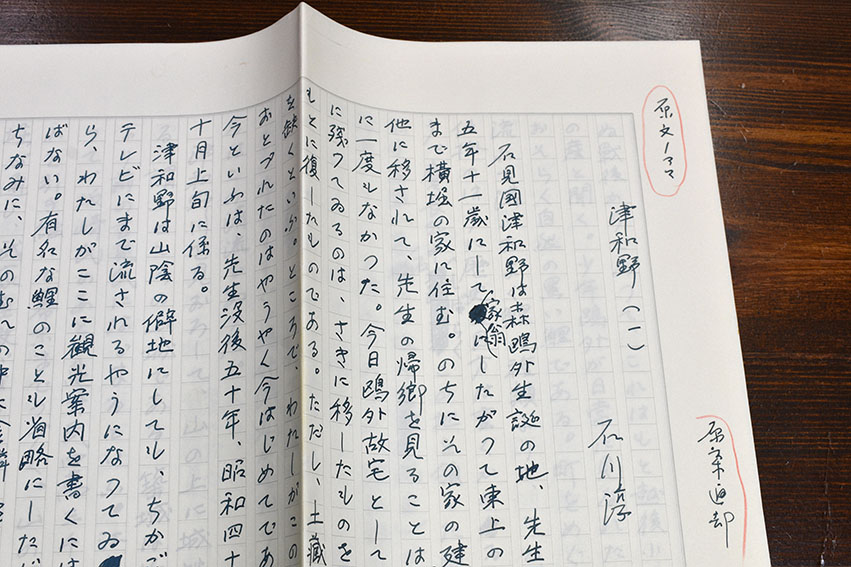 原文ノママ
原稿返却
津和野(一)
石川淳
石見國津和野は森鷗外生誕の地、先生
五年十一歳にて家翁にしたがつて東上の
まで横堀の家に住む。のちにその家の建
他に移されて、先生の帰郷を見ることは
に一度もなかつた。今日鷗外故宅として
に殘つてゐるのは、さきに移したものを
もとに復したものである。ただし、土藏
を缺くといふ。ところで、わたしがこの
おとづれたのはやうやく今はじめてであ
今といふは、先生没後五十年、昭和四十
十月上旬に係る。
津和野は山陰の僻地にしても、ちかご
テレビにまで流されるやうになつてゐ
ら、わたしがここに観光案内を書くには
ばない。有名な鯉のことも省略にした
ちなみに、そのむ